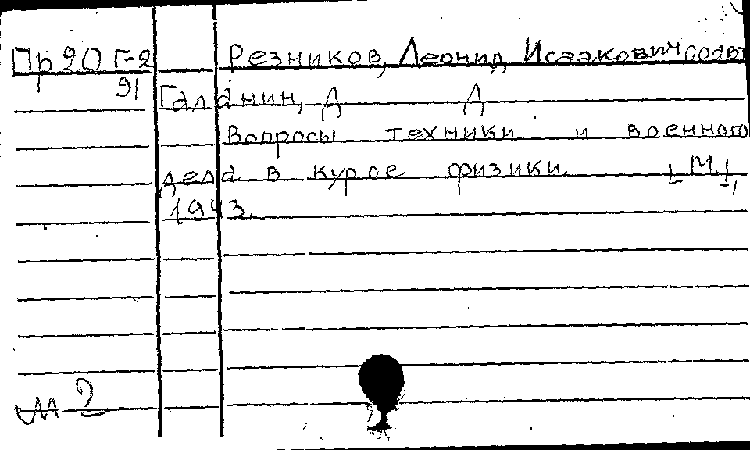 Пр 20 Г-2 Резников, Леонид Исаакович соавт
91 Галанин, Д Д
Вопросы техники и военного
дела в курсе физики. [М],
1943.
м 2